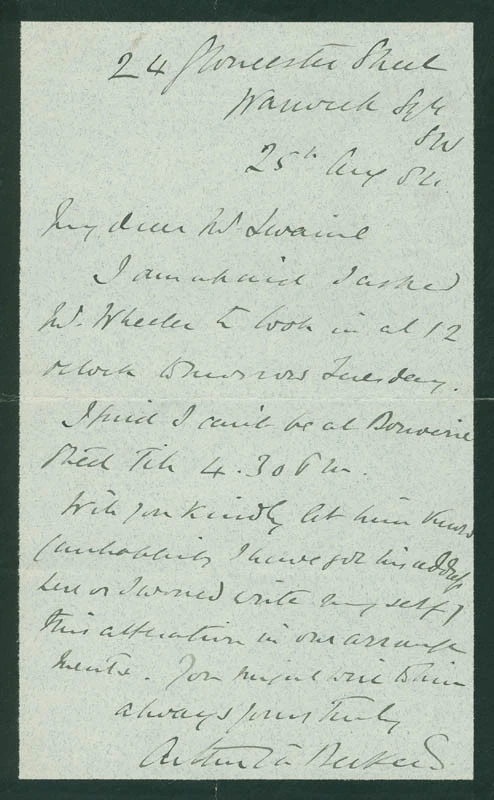 24 Gloucester Street
Warwick Sqr
SW
25th Aug 84.
My dear Mr Swaine
I am afraid I asked
Mr. Wheeler to look in at 12
o'clock tomorrow Tuesday.
I find I can't be at Bouverie
Street till 4.30 P.m.
Will you kindly let him know
(unhappily I have not his address
here or I would write myself)
this alteration in our arrange
ments. You might wire to him
always yours truly
Arthur